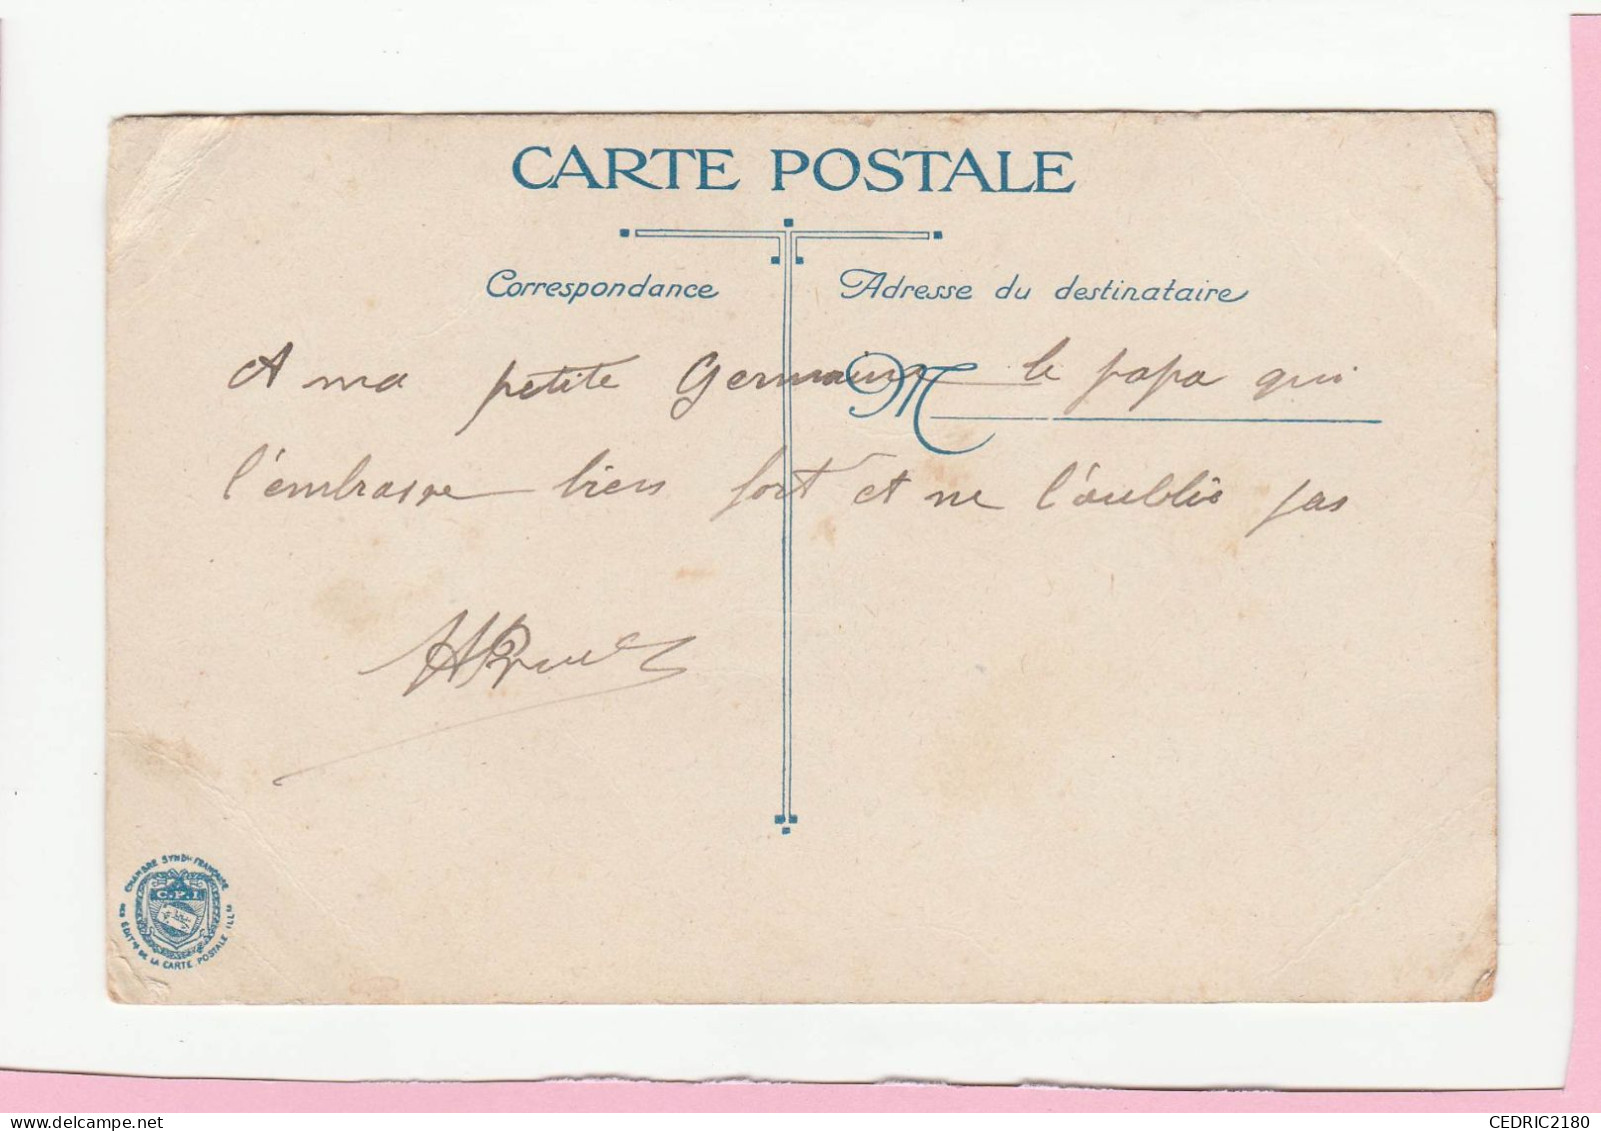 CARTE POSTALE
Correspondance
Adresse du destinataire
M
A ma petite Germaine le papa qui
l'embrasse bien fort et ne l'oublie pas
CHAMBRE SYND^le FRANÇAISE
C.P.I
DES ÉDIT^rs DE LA CARTE POSTALE ILL^ée
CEDRIC2180